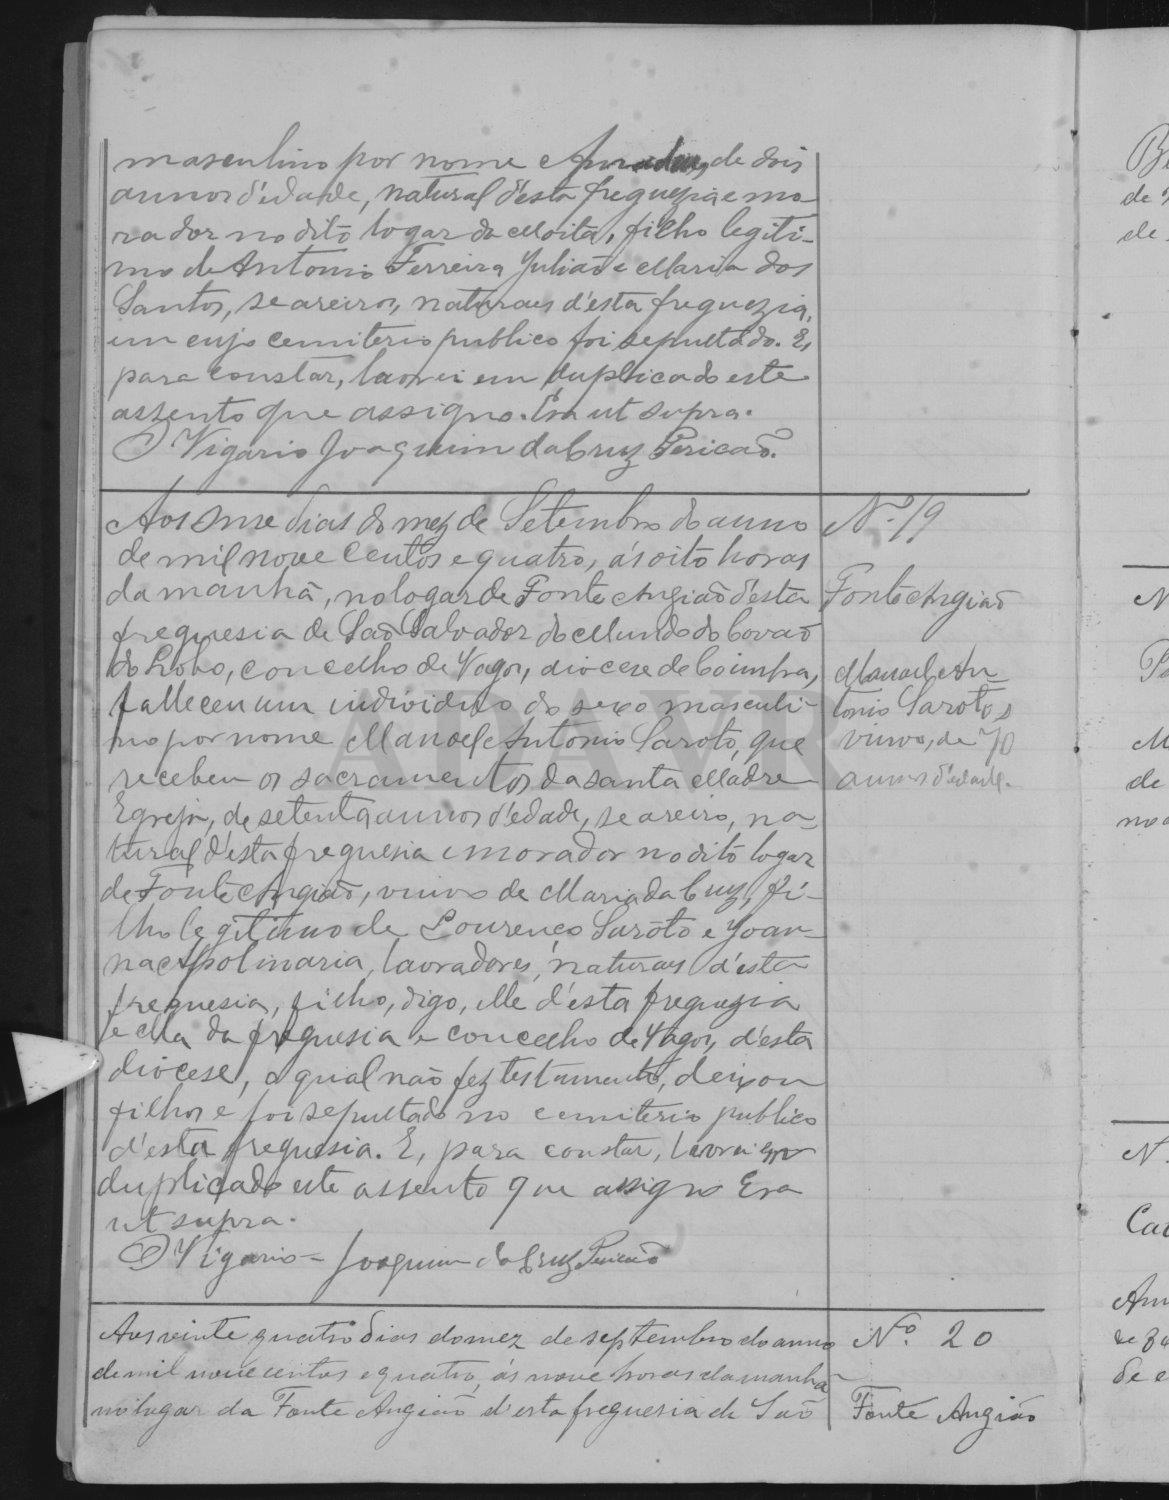 masculino por nome Amadeu, de dois
annos d'edade, natural d'esta freguezia e mo
rador no dito logar da Moita, filho legiti-
mo de Antonio Ferreira Julião e Maria dos
Santos, seareiros, naturaes d'esta freguezia,
em cujo cemiterio publico foi sepultado. E,
para constar, lavrei em duplicado este
assento que assigno. Era ut supra.
O Vigario Joaquim da Cruz Pericão.
Aos onse dias do mez de Setembro do anno
de mil nove centos e quatro, ás oito horas
da manhã, no logar de Fonte Angião d'esta
freguesia de São Salvador do Mundo do Covão
do Lobo, concelho de Vagos, diocese de Coimbra,
falleceu um individuo do sexo masculi-
no por nome Manoel Antonio Saroto, que
recebeu os sacramentos da santa Madre
Egreja, de setenta annos d'edade, seareiro, na-
tural d'esta freguesia e morador no dito logar
de Fonte Angião, viuvo de Maria da Cruz, fi-
lho legitimo de Lourenço Saroto e Joan-
na Apolinaria, lavradores, naturaes d'esta
freguesia, filho, digo, elle d'esta freguezia
e ella da freguesia e concelho de Vagos, d'esta
diocese, o qual não fez testamento, deixou
filhos e foi sepultado no cemiterio publico
d'esta freguesia. E, para constar, lavrei em
duplicado este assento que assigno Era
ut supra.
O Vigario = Joaquim da Cruz Pericão
Nº 19
Fonte Angião
Manoel An-
tonio Saroto,
viuvo, de 70
annos d'edade.
ADAVR
Aos vinte quatro dias do mez de septembro do anno
de mil nove centos e quatro, ás nove horas da manhã
no lugar da Fonte Angião d'esta freguesia de São
Nº. 20
Fonte Angião
de
de
N
M
de
N.
Am
de